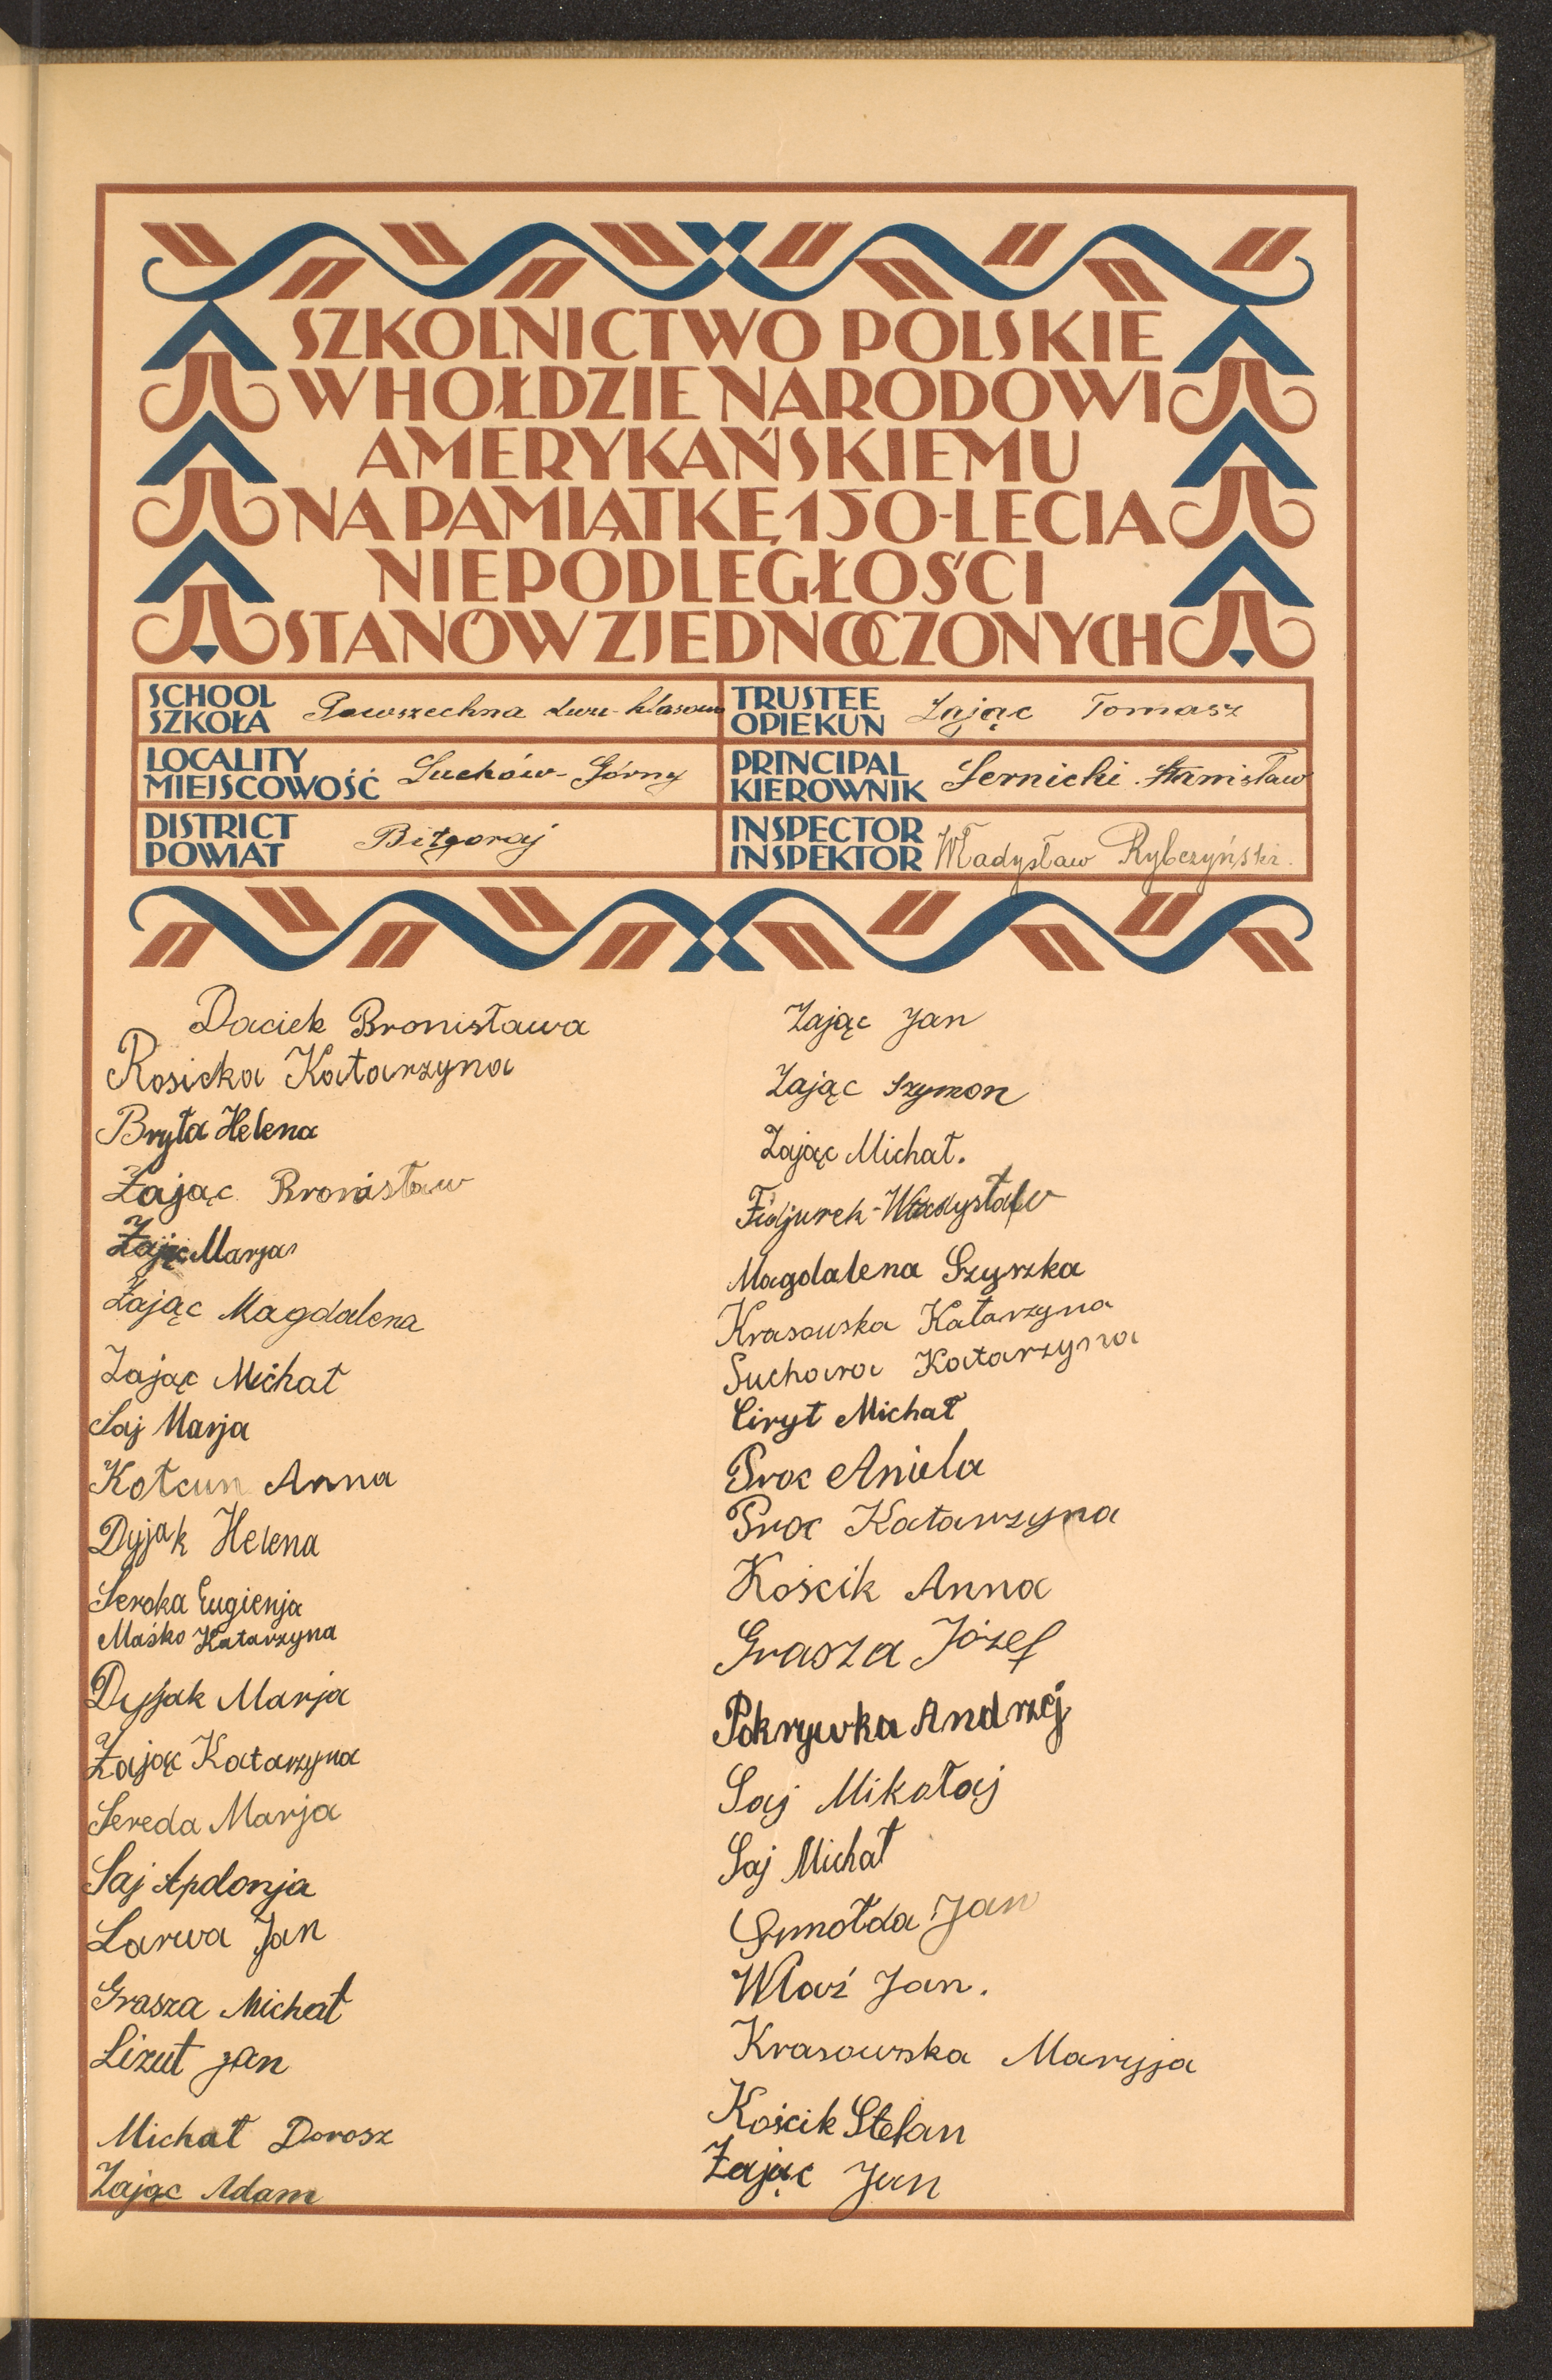 SZKOLNICTWO POLSKIE
W HOŁDZIE NARODOWI
AMERYKAŃSKIEMU
NA PAMIĄTKĘ 150-LECIA
NIEPODLEGŁOŚCI
STANÓW ZJEDNOCZONYCH
SCHOOL
SZKOŁA
Powszechna dwu-klasowa
TRUSTEE
OPIEKUN
Zając Tomasz
LOCALITY
MIEJSCOWOŚĆ
Luchów-Górny
PRINCIPAL
KIEROWNIK
Sernicki Stanisław
DISTRICT
POWIAT
Biłgoraj
INSPECTOR
INSPEKTOR
Władysław Rybczyński.
Daciek Bronisława
Rosicka Katarzyna
Bryła Helena
Zając Bronisław
Zając Marja
Zając Magdalena
Zając Michał
Saj Marja
Kołcun Anna
Dyjak Helena
Seroka Eugienja
Maśko Katarzyna
Dyjak Marja
Zając Katarzyna
Sereda Marja
Saj Apolonja
Larwa Jan
Grasza Michał
Lizut Jan
Michał Dorosz
Zając Adam
Zając Jan
Zając Szymon
Zając Michał.
Fidjurek-Władysław
Magdalena Szyszka
Krasowska Katarzyna
Suchara Katarzyna
Ciryt Michał
Proc Aniela
Proc Katarzyna
Kościk Anna
Grasza Józef
Pokrywka Andrzej
Saj Mikołaj
Saj Michał
Smołda Jan
Właź Jan.
Krasowska Maryja
Kościk Stefan
Zając Jan